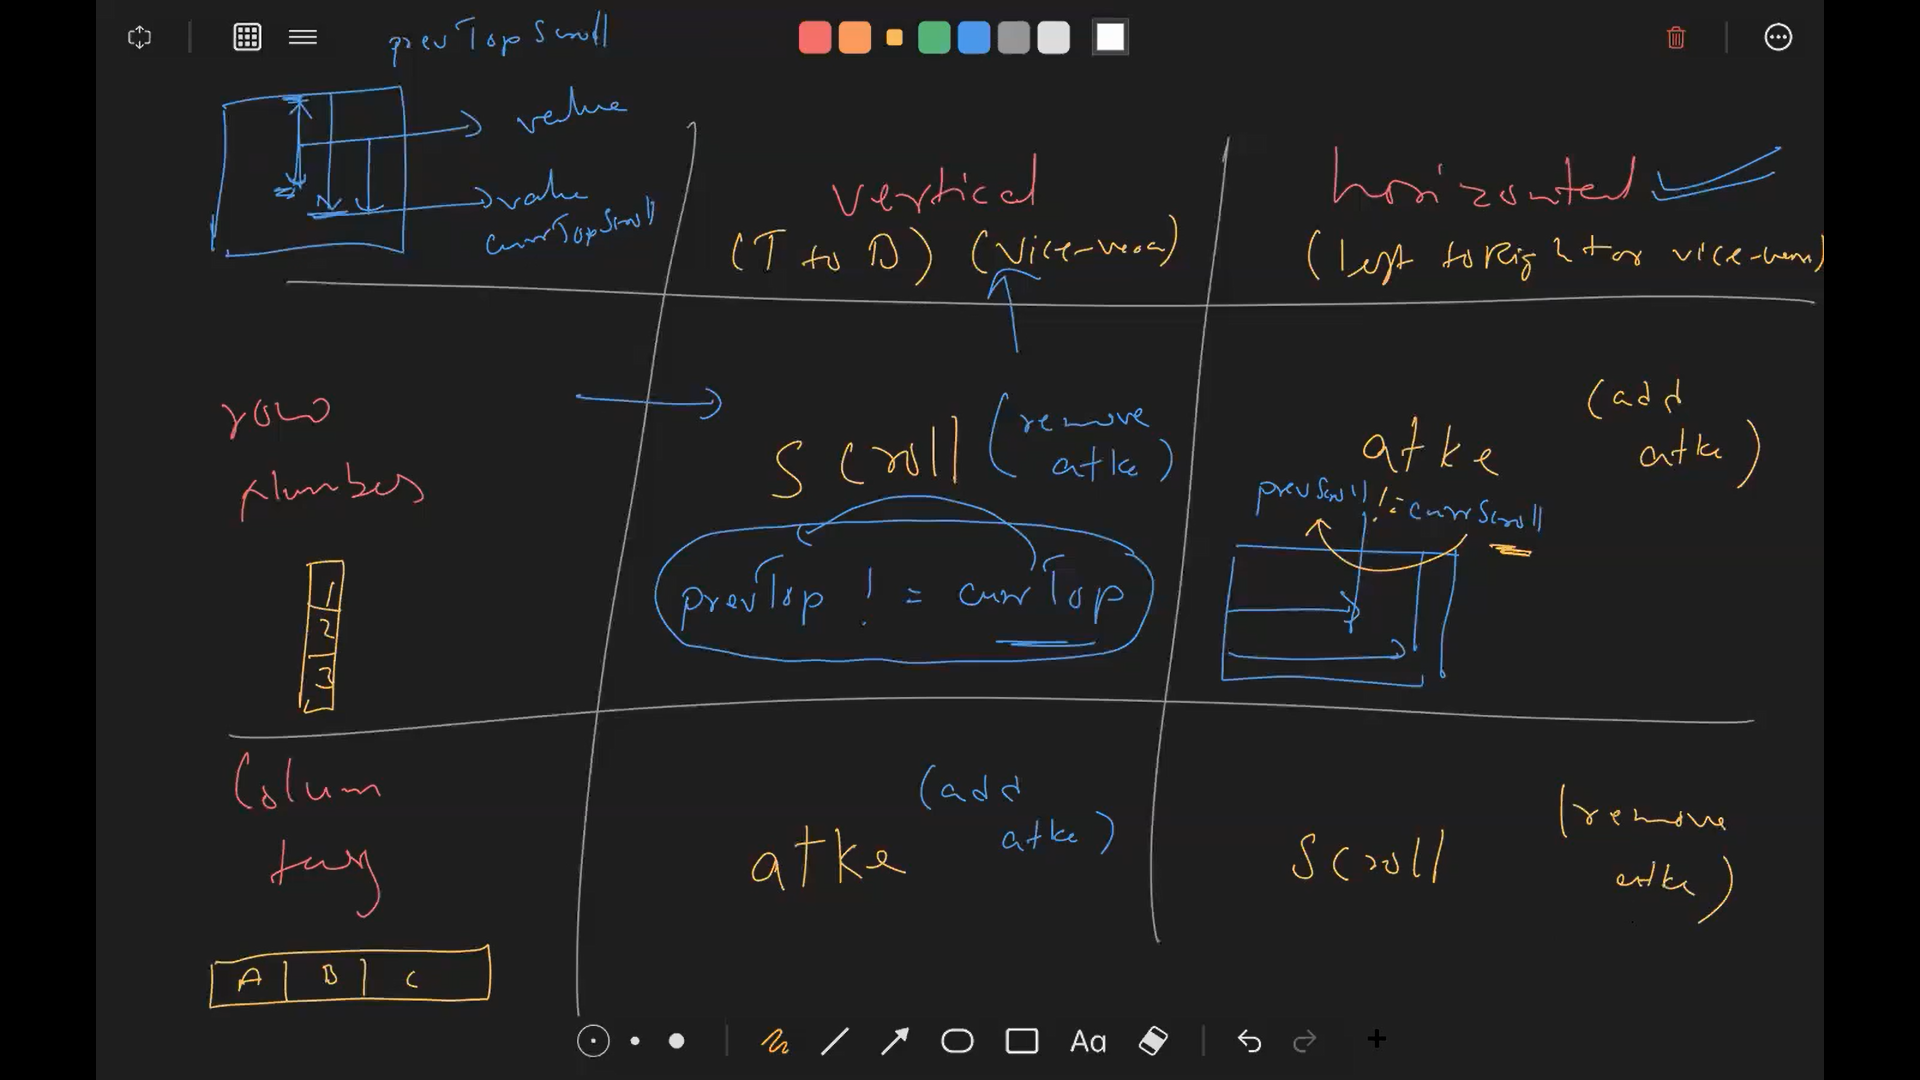 prevTopScroll
value
value
currTopScroll
vertical
(T to D) (vice-versa)
horizontal
(left to Right or vice-versa)
row
Numbers
scroll
(remove
atke)
prevTop != currTop
atke
(add
atke)
prevScroll != currScroll
1
2
3
Column
tag
(add
atke)
atke
Scroll
(remove
atke)
A B C
Aa